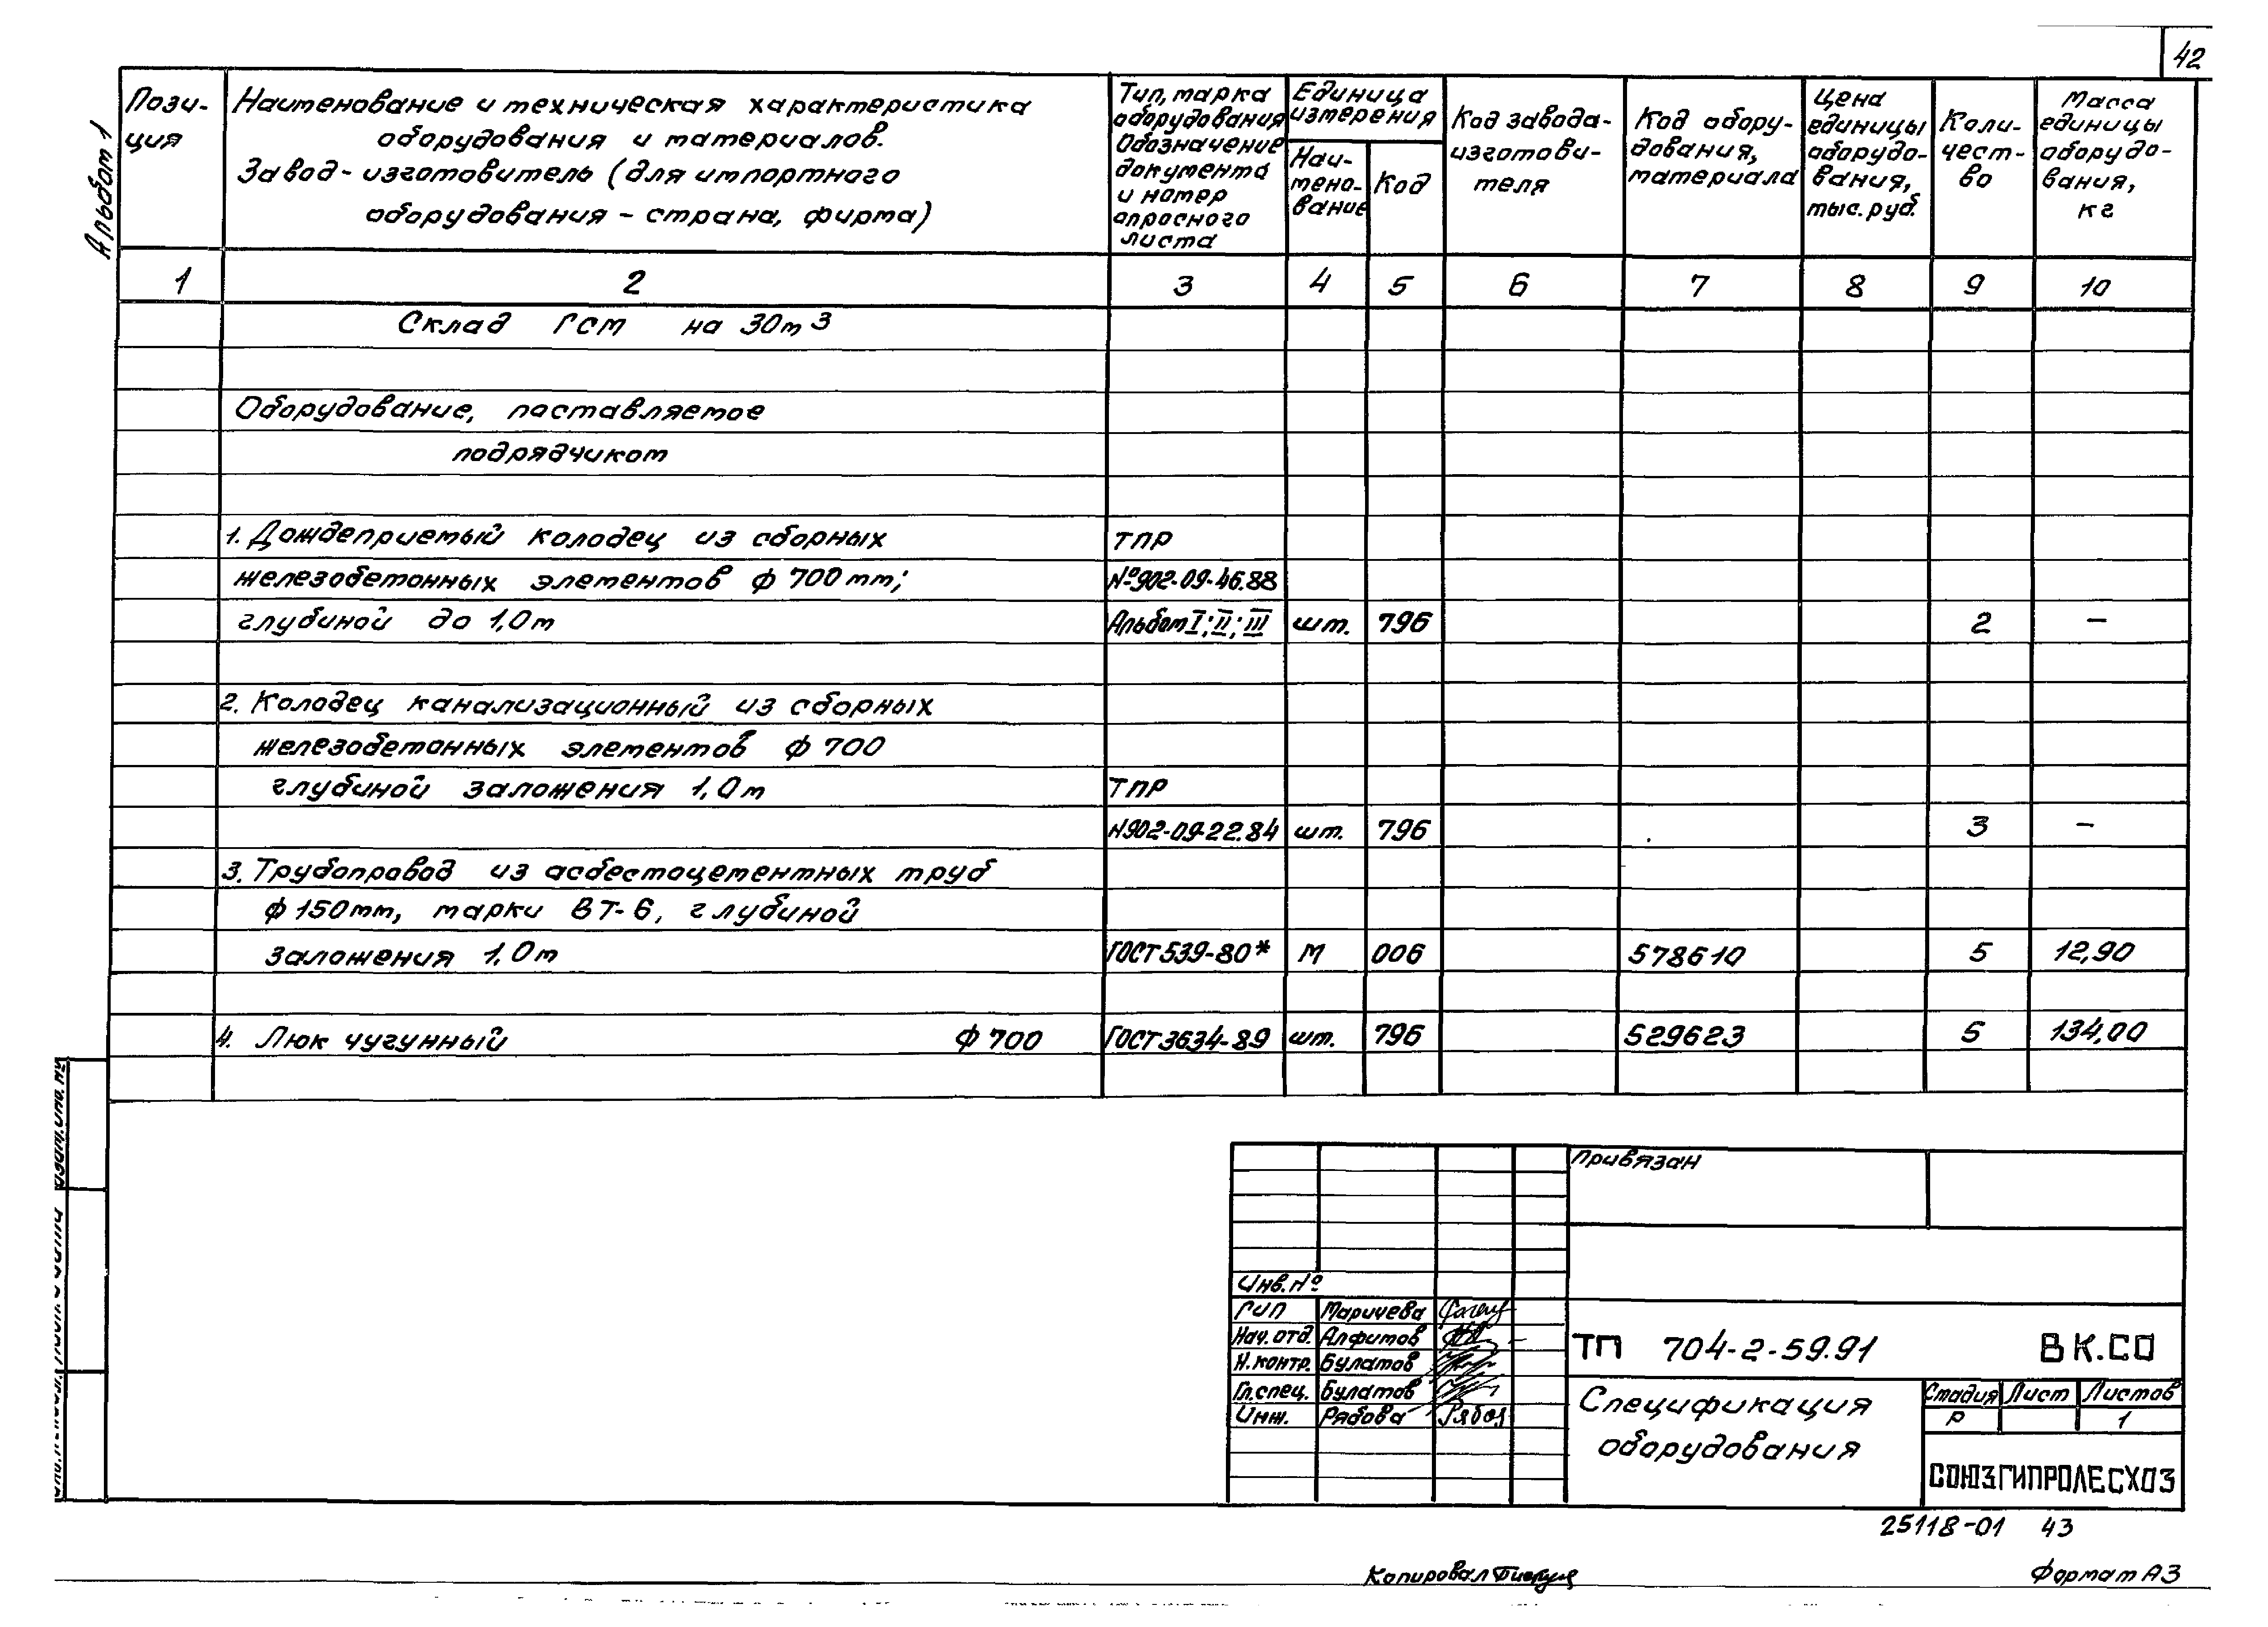 42
Альбом 1
Пози-
ция
Наименование и техническая характеристика
оборудования и материалов.
Завод-изготовитель (для импортного
оборудования - страна, фирма)
Тип, марка
оборудования
Обозначение
документа
и номер
опросного
листа
Единица
измерения
Наи-
мено-
вание
Код
Код завода-
изготови-
теля
Код обору-
дования,
материала
Цена
единицы
оборудо-
вания,
тыс. руб.
Коли-
чест-
во
Масса
единицы
оборудо-
вания,
кг
1 2 3 4 5 6 7 8 9 10
Склад ГСМ на 30м3
Оборудование, поставляемое
подрядчиком
1. Дождеприемый колодец из сборных ТПР
железобетонных элементов ф 700 мм; №902-09-46.88
глубиной до 1,0 м Альбом I; II; III шт. 796 2 —
2. Колодец канализационный из сборных
железобетонных элементов ф 700
глубиной заложения 1,0 м ТПР
N902-09-22.84 шт. 796 3 —
3. Трубопровод из асбестоцементных труб
ф 150мм, марки ВТ-6, глубиной
заложения 1,0 м ГОСТ 539-80* М 006 578610 5 12,90
4. Люк чугунный ф 700 ГОСТ 3634-89 шт. 796 529623 5 134,00
Привязан
Инв. №
ГИП Маричева
Нач. отд. Алфимов
Н. контр. Булатов
Гл. спец. Булатов
Инж. Рябова
ТП 704-2-59.91 ВК.СО
Спецификация
оборудования
Стадия Лист Листов
Р 1
СОЮЗГИПРОЛЕСХОЗ
25118-01 43
Копировал
Формат А3